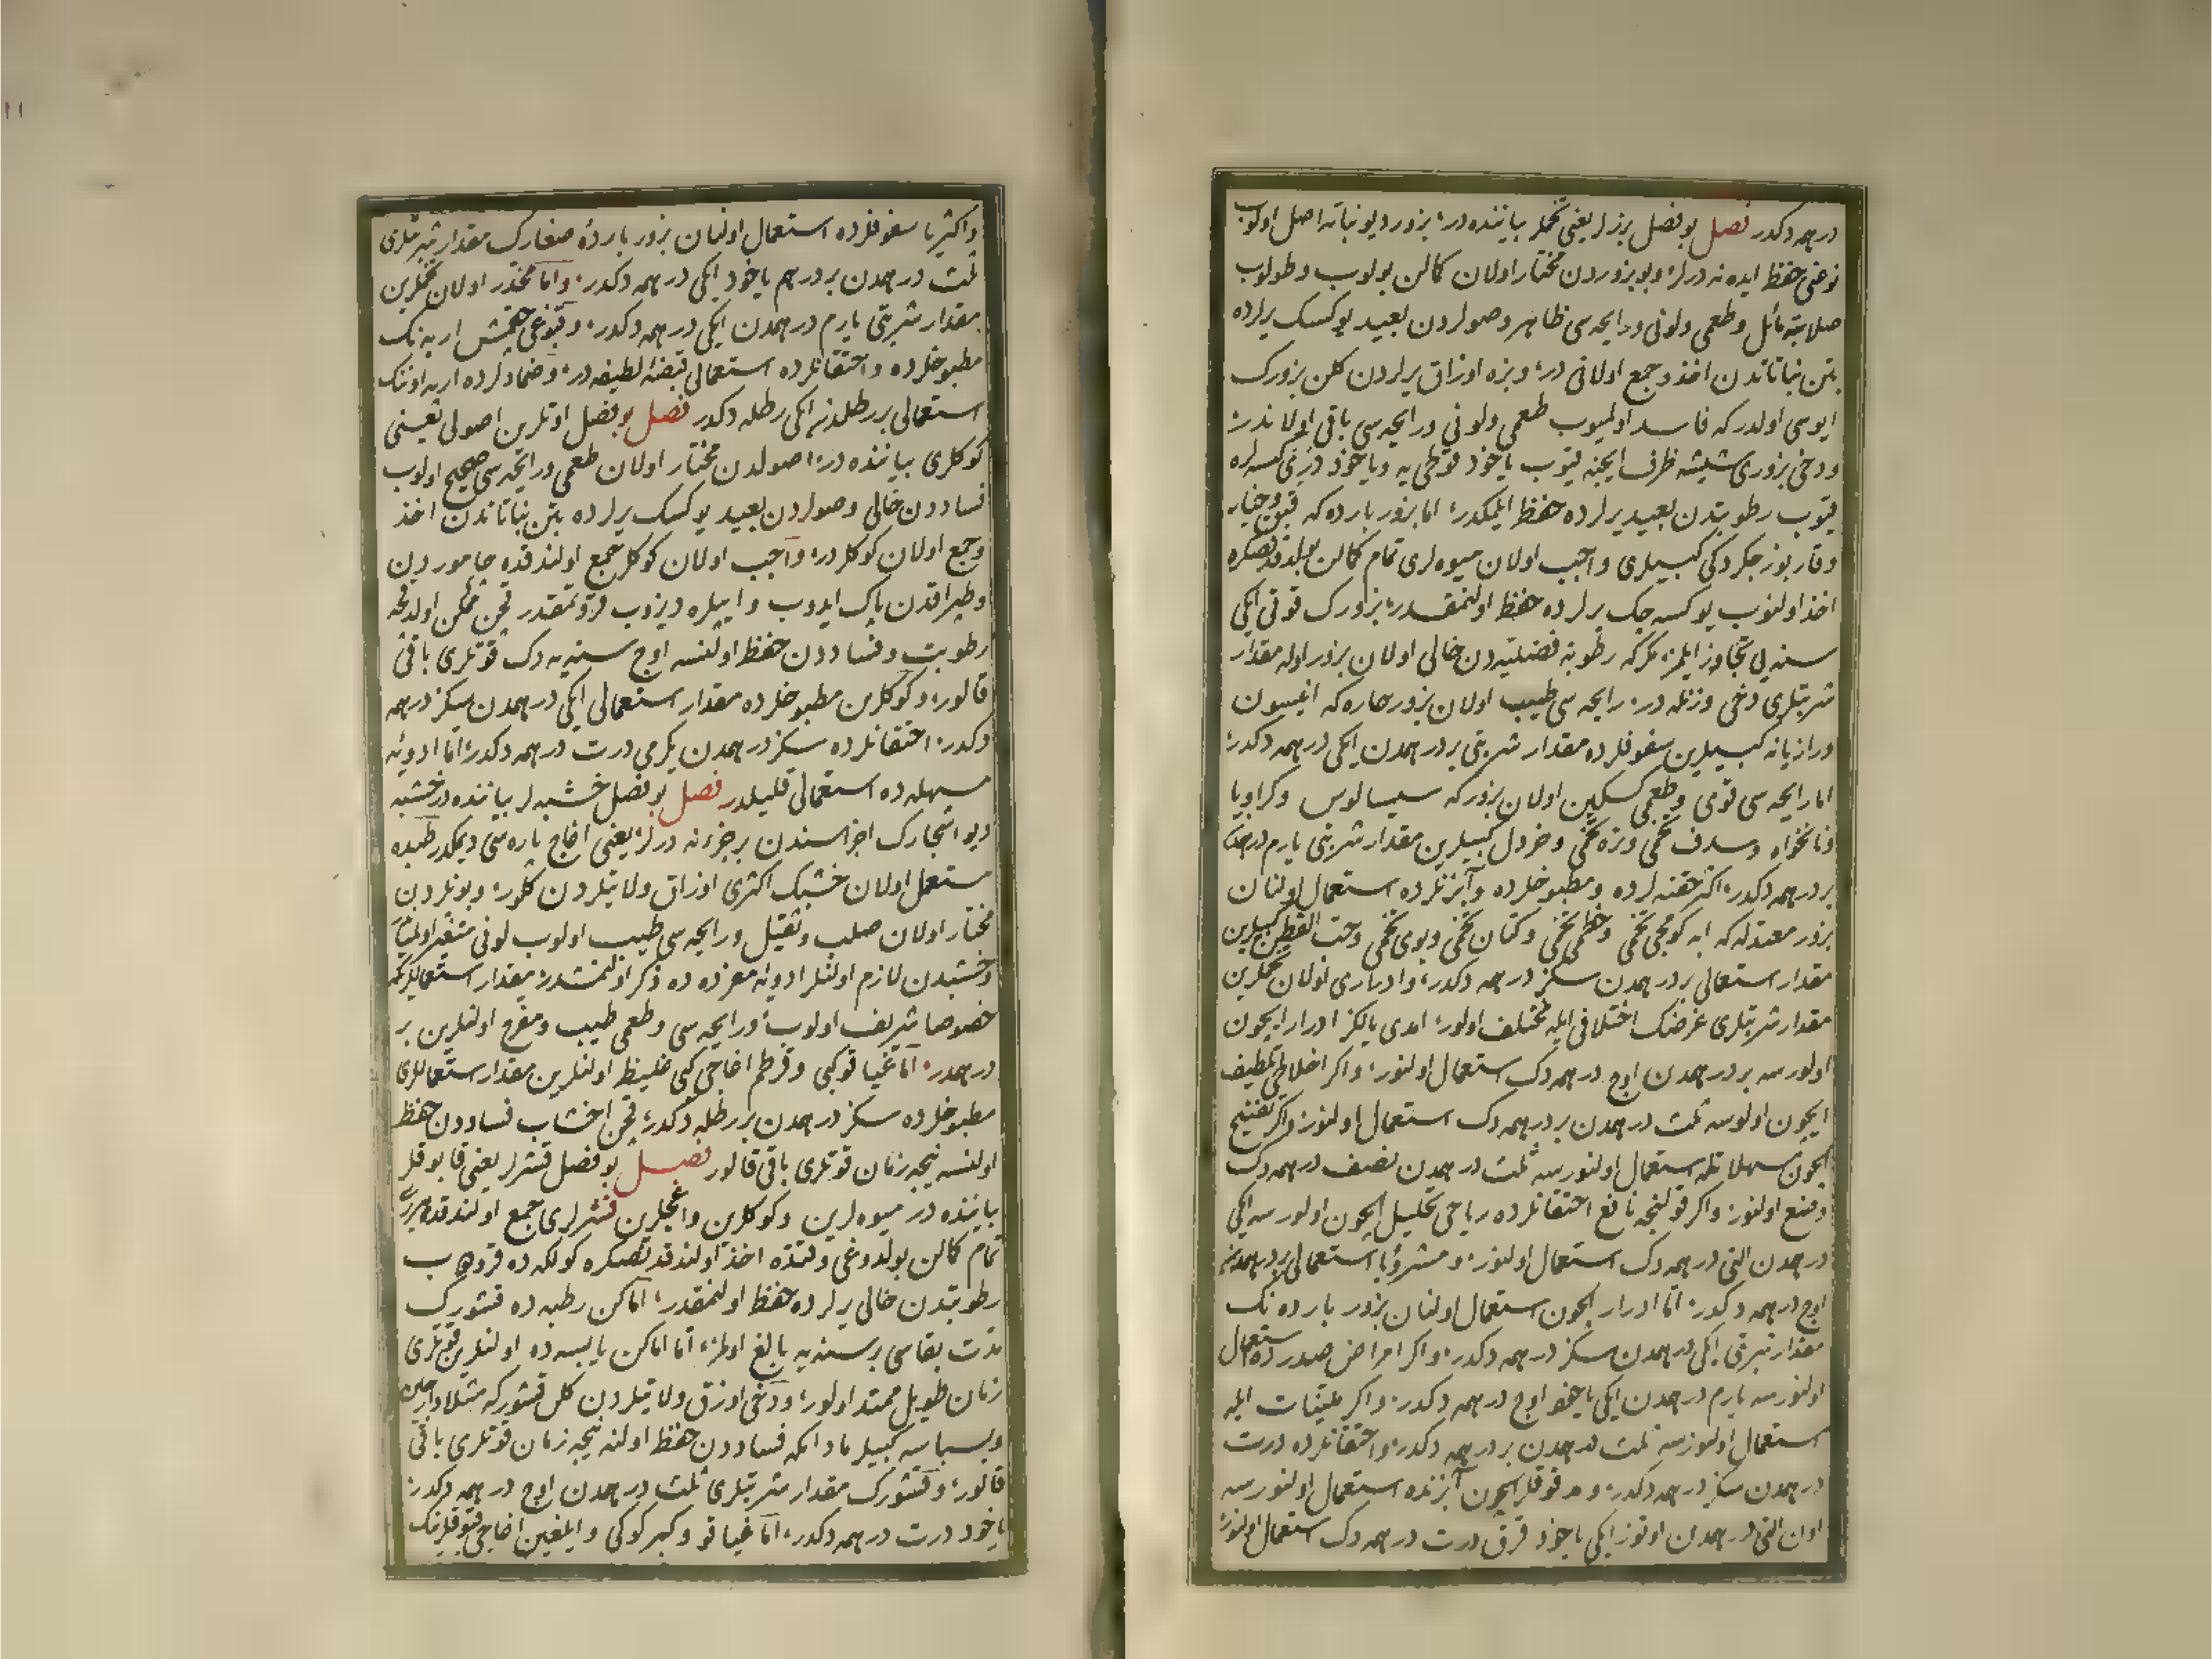 درهمه دكدر فصل بو فصل بزرلر يعنى تخملر بياننده در بزور ديو نباته اصل اولوب
نوعنى حفظ ايده نه درلر و بو بزوردن مختار اولان كالن بولوب و طولوب
صلابته مائل و طعمى و لونى و رايحه سى ظاهر و صولردن بعيد يوكسك يرلرده
بتن نباتاتدن اخذ و جمع اولانى در و بزه اوزاق يرلردن كلن بزورك
ايوسى اولدر كه فاسد اولميوب طعمى و لونى و رايحه سى باقى اولاندر
و دخى بزورى شيشه ظرف ايچنه قيوب ياخود قوطى يه و ياخود كسه لره
قيوب رطوبتدن بعيد يرلرده حفظ ايلمكدر اما بزور بارده كه قبون و خيار
و قاربوز چكردكى كبيلرى واجب اولان ميوه لرى تمام كمالن بولدقدنصكره
اخذ اولنوب يوكسه جك يرلرده حفظ اولنمقدر بزورك قوتى ايكى
سنه يى تجاوز ايلمز مكر كه رطوبة فضليه دن خالى اولان بزور اوله مقدار
شربتلرى دخى وزنله در رايحه سى طيب اولان بزور حاره كه انيسون
و رازيانه كبيلرين سفوفلرده مقدار شربتى بر درهمدن ايكى درهمه دكدر
اما رايحه سى قوى و طعمى كسكين اولان بزور كه سيسالوس و كراويا
و نانخواه و سدف تخمى و تره تخمى و خردل كبيلرين مقدار شربتى يارم درهمدن
بر درهمه دكدر اكثر حقنه لرده و مطبوخلرده و آبزنلرده استعمال اولنان
بزور معتدله كه ابه كومجى تخمى و خطمى تخمى و كتان تخمى و بوى تخمى و حب القطن كبيلرين
مقدار استعمالى بر درهمدن سكز درهمه دكدر و ادرارى اولان تخملرين
مقدار شربتلرى غرضك اختلافى ايله مختلف اولور امدى يالكز ادرار ايچون
اولورسه بر درهمدن اوچ درهمه دك استعمال اولنور و اكر اخلاطى تلطيف
ايچون اولورسه ثلث درهمدن بر درهمه دك استعمال اولنور و اكر تفتيح
ايچون مسهلاتله استعمال اولنورسه ثلث درهمدن نصف درهمه دك
وضع اولنور و اكر قولنجه نافع احتقانلرده رياحى تحليل ايچون اولورسه ايكى
درهمدن التى درهمه دك استعمال اولنور و مشروبا استعمالى بر درهمدن
اوچ درهمه دكدر اما ادرار ايچون استعمال اولنان بزور بارده نك
مقدار شربتى ايكى درهمدن سكز درهمه دكدر و اكر امراض صدرده استعمال
اولنورسه يارم درهمدن ايكى ياخود اوچ درهمه دكدر و اكر ملينات ايله
استعمال اولنورسه ثلث درهمدن بر درهمه دكدر و احتقانلرده درت
درهمدن سكز درهمه دكدر و مدقوقلر ايچون آبزنده استعمال اولنورسه
اون التى درهمدن اوتوز ايكى ياخود قرق درت درهمه دك استعمال اولنور
و اكثريا سفوفلرده استعمال اولنان بزور بارده صغارك مقدار شربتلرى
ثلث درهمدن بر درهم ياخود ايكى درهمه دكدر و اما مخدر اولان تخملرين
مقدار شربتى يارم درهمدن ايكى درهمه دكدر و قبوغى چقمش اربه نك
مطبوخلرده و احتقانلرده استعمالى قبضۀ لطيفه در و ضمادلرده اربه اوننك
استعمالى بر رطلدن ايكى رطله دكدر فصل بو فصل اوتلرين اصولى يعنى
كوكلرى بياننده در اصولدن مختار اولان طعمى و رايحه سى صحيح اولوب
فساددن خالى و صولردن بعيد يوكسك يرلرده بتن نباتاتدن اخذ
و جمع اولان كوكلردر واجب اولان كوكلر جمع اولندقده چاموردن
و طپراقدن پاك ايدوب و ايپلره ديزوب قروتمقدر قچن ممكن اولدقجه
رطوبت و فساددن حفظ اولنسه اوچ سنه يه دك قوتلرى باقى
قالور و كوكلرين مطبوخلرده مقدار استعمالى ايكى درهمدن سكز درهمه
دكدر احتقانلرده سكز درهمدن يكرمى درت درهمه دكدر اما ادويۀ
مسهله ده استعمالى قليلدر فصل بو فصل خشبه لر بياننده در خشبه
ديو اشجارك اجزاسندن بر جزءنه درلر يعنى اغاج پاره سى ديمكدر طبده
مستعمل اولان خشبك اكثرى اوزاق ولايتلردن كلور و بونلردن
مختار اولان صلب و ثقيل و رايحه سى طيب اولوب لونى متغير اولميا
و خشبدن لازم اولنلر ادويۀ مفرده ده ذكر اولنمشدر مقدار استعماللركه
خصوصا شريف اولوب و رايحه سى و طعمى طيب و مفرح اولنلرين بر
درهمدر اما غياقو كبى و قرطم اغاجى كبى غليظ اولنلرين مقدار استعماللرى
مطبوخلرده سكز درهمدن بر رطله دكدر قچن اخشاب فساددن حفظ
اولنسه نيجه زمان قوتلرى باقى قالور فصل بو فصل قشرلر يعنى قابوقلر
بياننده در ميوه لرين و كوكلرين و اغجلرين قشرلرى جمع اولندقده
تمام كمالن بولدوغى وقتده اخذ اولندقدنصكره كولكه ده قرودوب
رطوبتدن خالى يرلرده حفظ اولنمقدر اماكن رطبه ده قشورك
مدت بقاسى بر سنه يه بالغ اولمز اما اماكن يابسه ده اولنلرين قوتلرى
زمان طويل ممتد اولور و دخى اوزاق ولايتلردن كلن قشور كه مثلا دارچين
و بسباسه كبيلر مادامكه فساددن حفظ اولنه نيجه زمان قوتلرى باقى
قالور و قشورك مقدار شربتلرى ثلث درهمدن اوچ درهمه دكدر
ياخود درت درهمه دكدر اما غياقو و كبر كوكى و ايلغين اغاجى قبوقلرينك
١١